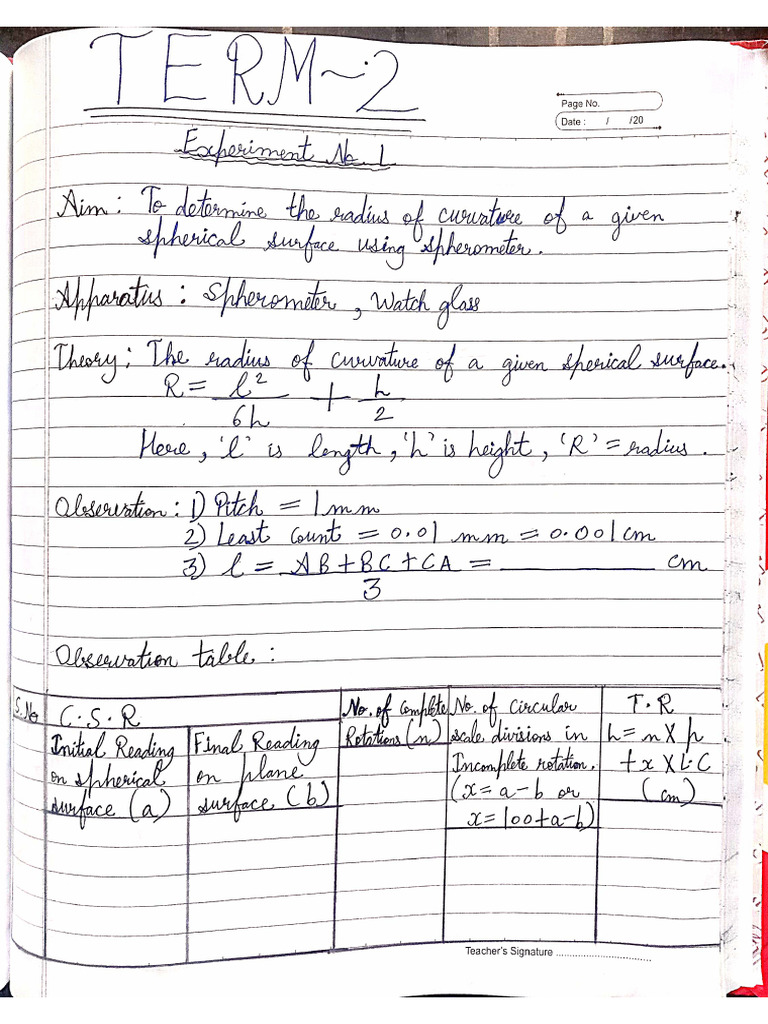 TERM-2
Page No.
Date : / /20
Experiment No. 1
Aim: To determine the radius of curvature of a given
spherical surface using spherometer.
Apparatus: Spherometer, Watch glass
Theory: The radius of curvature of a given sperical surface.
R = l²/6h + h/2
Here, 'l' is length, 'h' is height, 'R' = radius.
Observation: 1) Pitch = 1mm
2) Least count = 0.01 mm = 0.001cm
3) l = AB+BC+CA/3 = ________ cm
Observation table:
S.No C.S.R No. of Complete Rotations (n) No. of Circular scale divisions in Incomplete rotation. (x = a-b or x = 100+a-b) T.R h = n X p + x X L.C (cm)
Initial Reading on spherical surface (a) Final Reading on plane surface (b)
Teacher's Signature ..............................